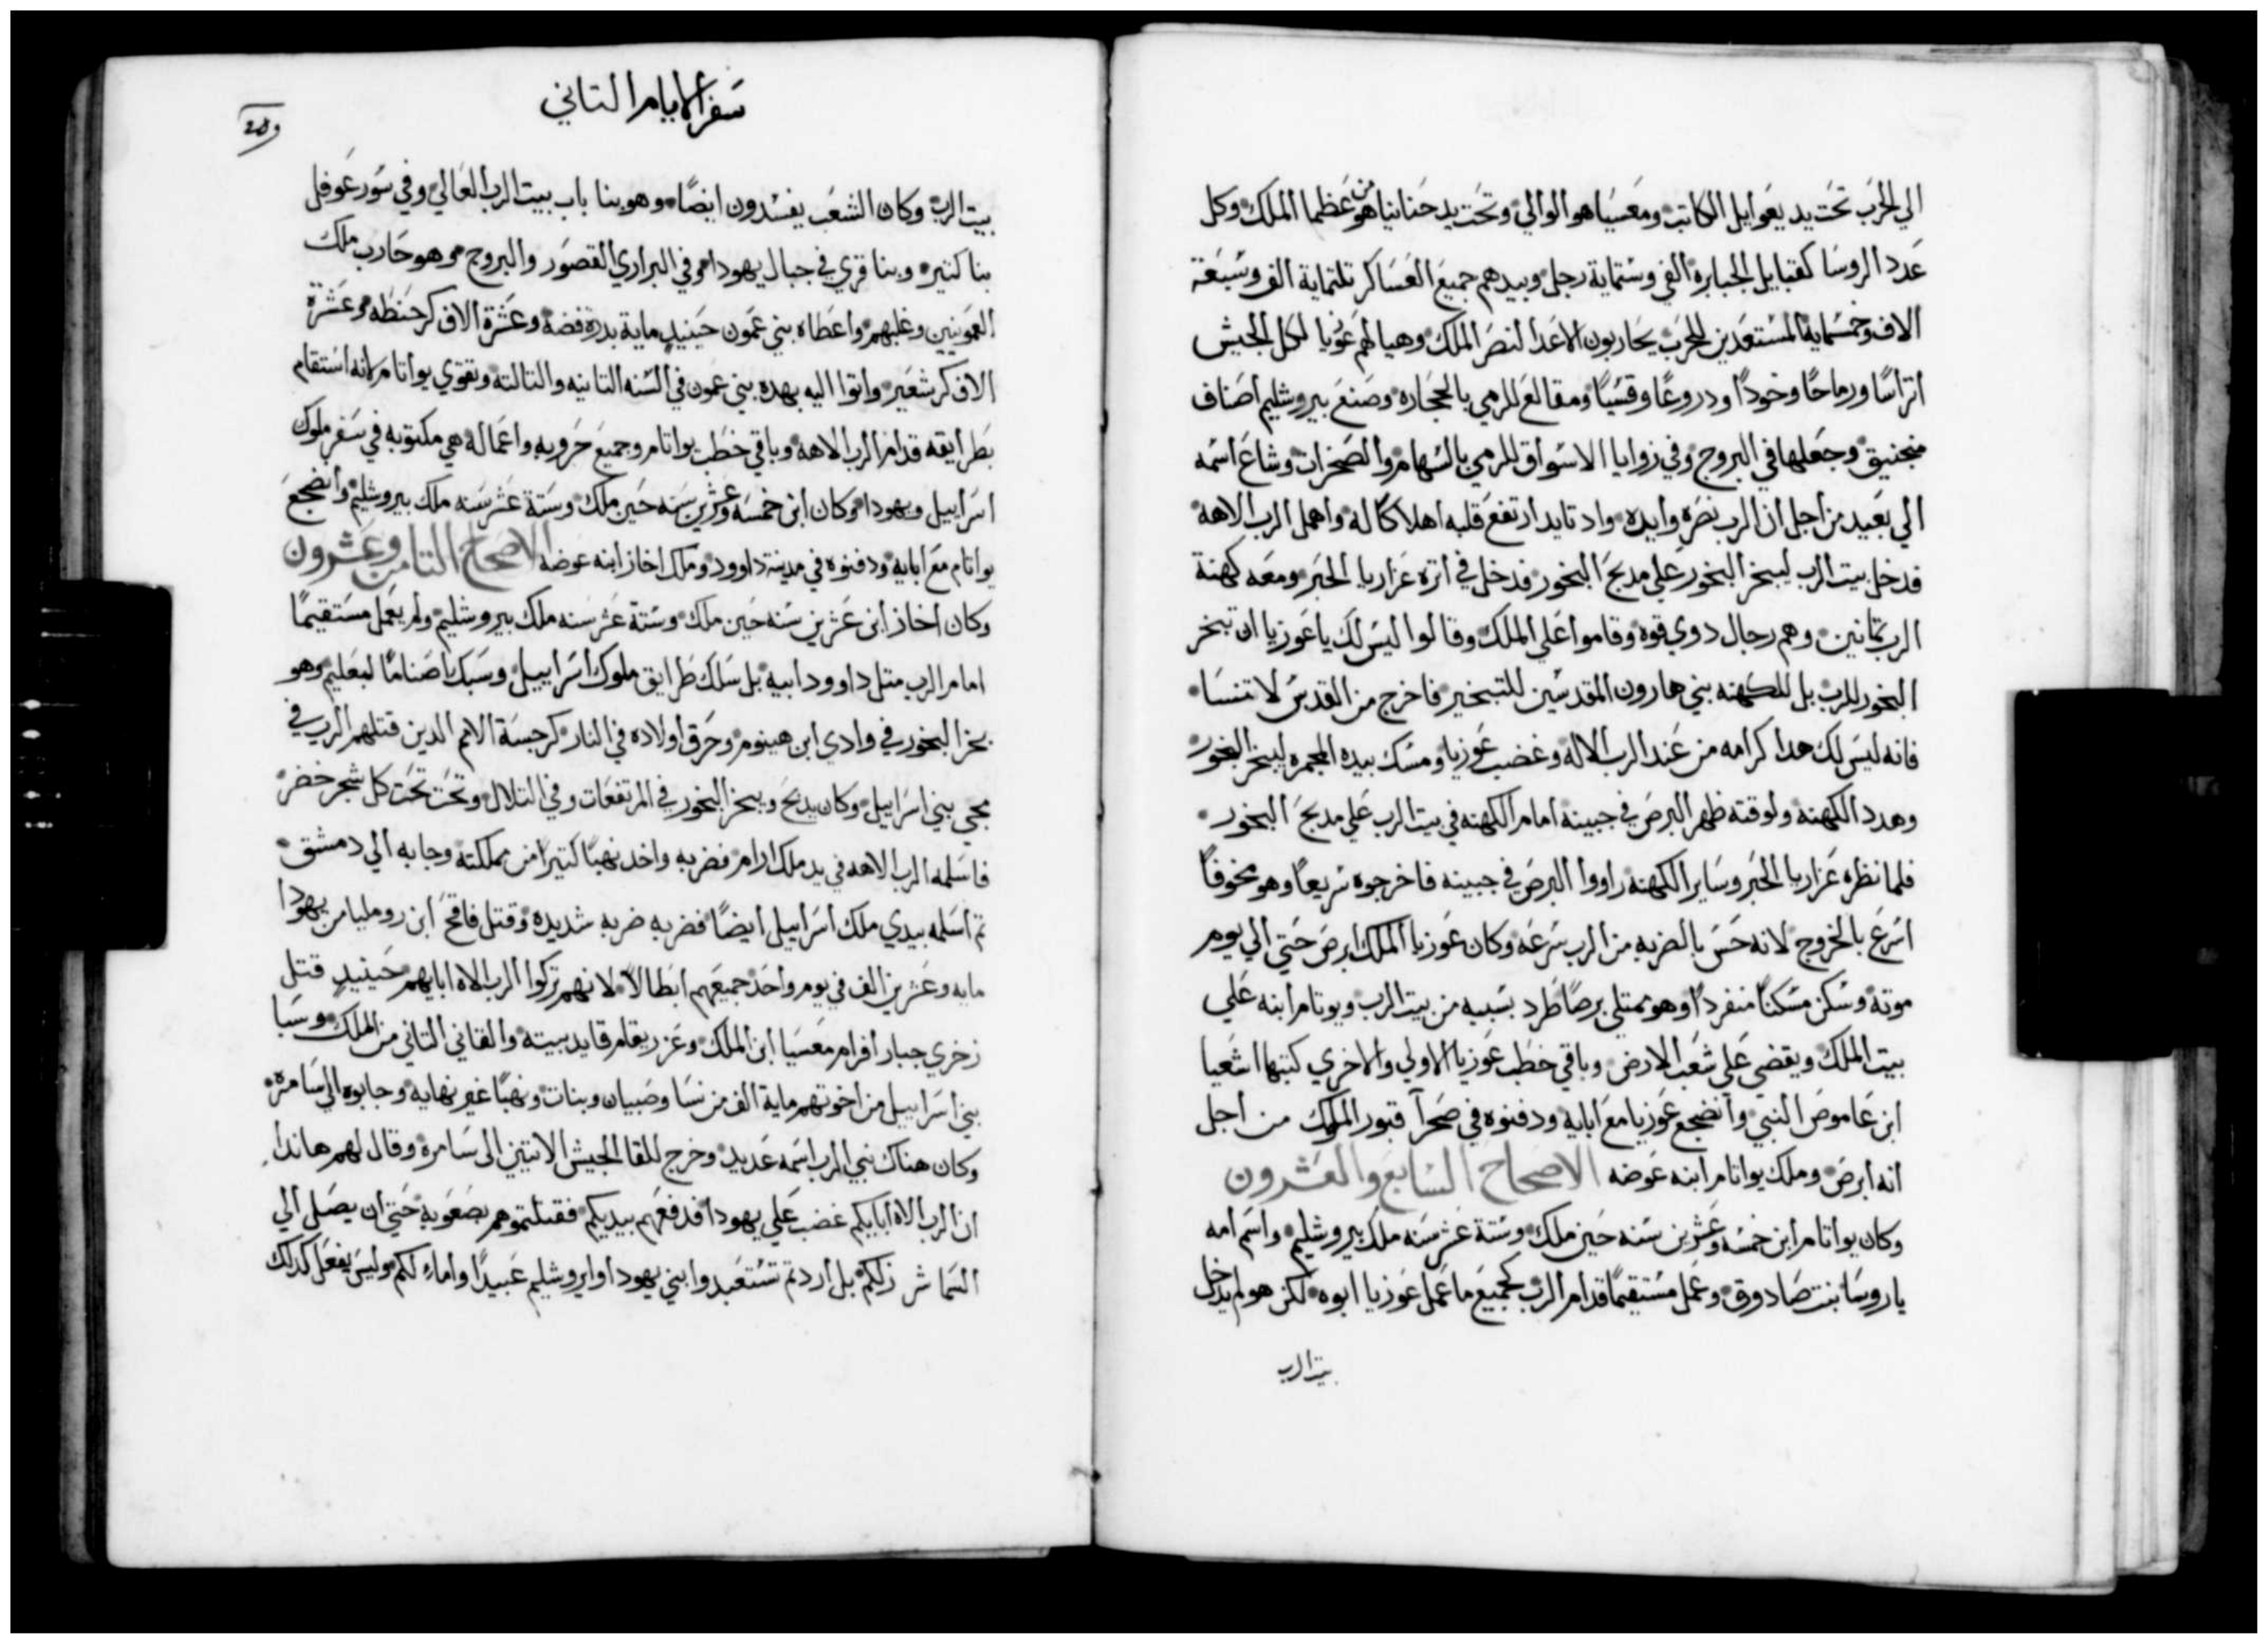 الي الحرب تحت يد يعوايل الكاتب ومعسيا هو الوالي وتحت يد حنانيا هو من عظما الملك وكل
عدد الروسا كقبايل الجبابره الفي وستماية رجل وبيدهم جميع العساكر تلتماية الف وسبعة
الاف وخمسماية المستعدين للحرب يحاربون الاعدا لنصر الملك وهيا لهم عوزيا لكل الجيش
اتراسًا ورماحًا وخودًا ودروعًا وقسيًا ومقالع للرمي بالحجاره وصنع بيروشليم اصناف
منجنيق وجعلها في البروج وفي زوايا الاسواق للرمي بالسهام والصخرات وشاع اسمه
الي بعيد من اجل ان الرب نصره وايده واد تايد ارتفع قلبه اهلاكًا له واهمل الرب الاهه
فدخل بيت الرب ليبخر البخور علي مدبح البخور فدخل في اتره عزاريا الحبر ومعه كهنة
الرب تمانين وهم رجال دوي قوه وقاموا علي الملك وقالوا ليس لك يا عوزيا ان تبخر
البخور للرب بل للكهنه بني هارون المقدسين للتبخير فاخرج من القدس لا تنسا
فانه ليس لك هدا كرامه من عند الرب الاله وغضب عوزيا ومسك بيده المجمره ليبخر البخور
وهدد الكهنة ولوقته ظهر البرص في جبينه امام الكهنه في بيت الرب علي مدبح البخور
فلما نظره عزاريا الحبر وساير الكهنه راووا البرص في جبينه فاخرجوه سريعًا وهو مخوفًا
اسرع بالخروج لانه حس بالضربه من الرب سرعه وكان عوزيا الملك ابرص حتي الي يوم
موته وسكن مسكنًا منفردًا وهو ممتلي برصًا طرد بسببه من بيت الرب ويوتام ابنه علي
بيت الملك ويقضي علي شعب الارض وباقي خطب عوزيا الاولي والاخري كتبها اشعيا
ابن عاموص النبي وانضجع عوزيا مع ابايه ودفنوه في صحرآ قبور الملوك من اجل
انه ابرص وملك يواتام ابنه عوضه الاصحاح السابع والعشرون
وكان يواتام ابن خمسه وعشرين سنه حين ملك وستة عشر سنه ملك بيروشليم واسم امه
ياروسا بنت صادوق وعمل مستقيمًا قدام الرب كجميع ما عمل عوزيا ابوه لكن هو لم يدخل
بيت الرب
سفر الايام التاني
بيت الرب وكان الشعب يفسدون ايضًا وهو بنا باب بيت الرب العالي وفي سور عوفل
بنا كتير وبنا قري في جبال يهودا وفي البراري القصور والبروج وهو حارب ملك
العمونيين وغلبهم واعطاه بني عمون حينيدٍ ماية بدرة فضة وعشرة الاف كر حنطه وعشرة
الاف كر شعير واتوا اليه بهده بني عمون في السنه التانيه والتالته وتقوي يواتام لانه استقام
بطرايقه قدام الرب الاهه وباقي خطب يواتام وجميع حروبه واعماله هي مكتوبه في سفر ملوك
اسراييل ويهودا وكان ابن خمسه وعشرين سنه حين ملك وستة عشر سنه ملك بيروشليم وانضجع
يواتام مع ابايه ودفنوه في مدينة داوود وملك اخاز ابنه عوضه الاصحاح التامن وعشرون
وكان اخاز ابن عشرين سنه حين ملك وستة عشر سنه ملك بيروشليم ولم يعمل مستقيمًا
امام الرب متل داوود ابيه بل سلك طرايق ملوك اسراييل وسبك اصنامًا لبعليم وهو
بخر البخور في وادي ابن هينوم وحرق اولاده في النار كرجسة الامم الدين قتلهم الرب في
مجي بني اسراييل وكان يدبح ويبخر البخور في المرتفعات وفي التلال وتحت تحت كل شجر خضر
فاسلمه الرب الاهه في يد ملك ارام فضربه واخد نهبًا كتيرًا من مملكته وجابه الي دمشق
تم اسلمه بيدي ملك اسراييل ايضًا فضربه ضربه شديده وقتل فاقح ابن روميليا من يهودا
مايه وعشرين الف في يوم واحد جميعهم ابطالًا لانهم تركوا الرب الاه ابايهم حينيدٍ قتل
زخري جبار افرام معسيا ابن الملك وعزريقام قايد بيته والقاني التاني من الملك وسبا
بني اسراييل من اخوتهم ماية الف من نسا وصبيان وبنات ونهبًا غير نهايه وجابوه الي سامرة
وكان هناك نبي الرب اسمه عديد وخرج للقا الجيش الاتيين الى سامرة وقال لهم هاندا
ان الرب الاه ابايكم غضب علي يهودا فدفعهم بيديكم فقتلتموهم بصعوبة حتي ان يصل الي
السما شر زلكم بل اردتم تستعبدوا بني يهودا وايروشليم عبيدًا واماء لكم وليس يفعل كدلك